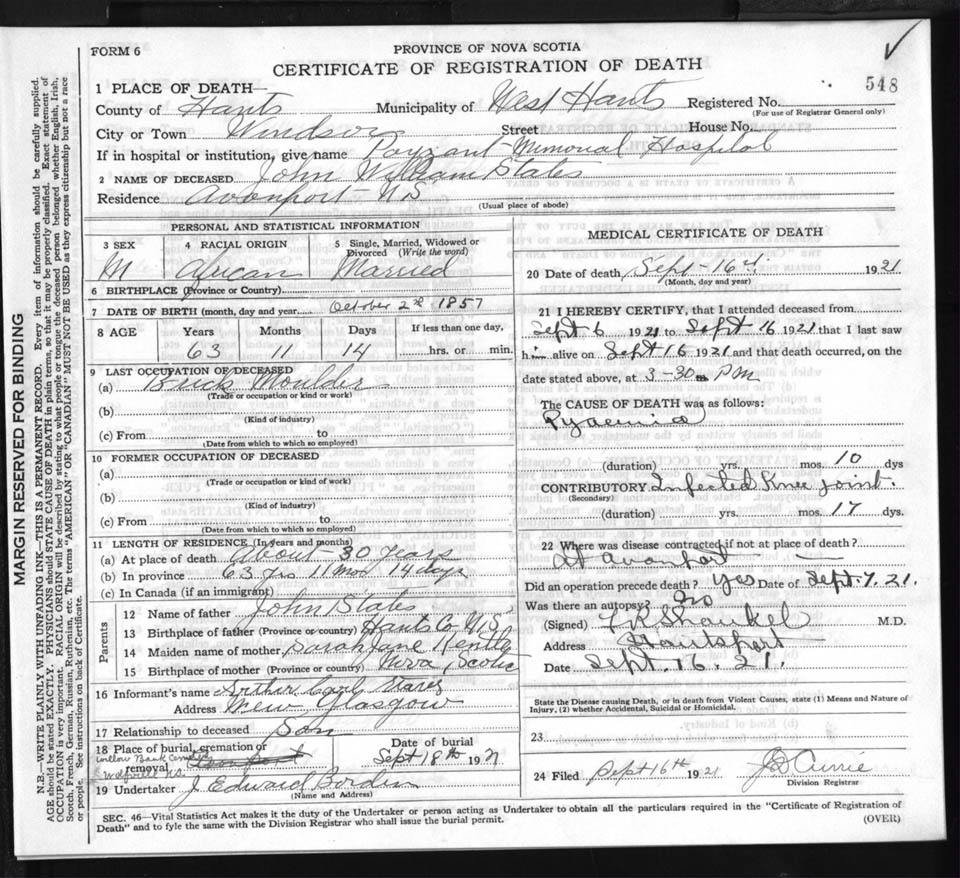 FORM 6
PROVINCE OF NOVA SCOTIA
CERTIFICATE OF REGISTRATION OF DEATH
548
1 PLACE OF DEATH—
County of Hants Municipality of West Hants Registered No.
(For use of Registrar General only)
City or Town Windsor Street House No.
If in hospital or institution, give name Payzant Memorial Hospital
2 NAME OF DECEASED John William States
Residence Avonport N.S.
(Usual place of abode)
PERSONAL AND STATISTICAL INFORMATION
3 SEX 4 RACIAL ORIGIN 5 Single, Married, Widowed or Divorced (Write the word)
M African Married
6 BIRTHPLACE (Province or Country)
7 DATE OF BIRTH (month, day and year) October 2nd 1857
8 AGE Years Months Days If less than one day,
63 11 14 hrs. or min.
9 LAST OCCUPATION OF DECEASED
(a) Brick Moulder
(Trade or occupation or kind of work)
(b)
(Kind of industry)
(c) From to
(Date from which to which so employed)
10 FORMER OCCUPATION OF DECEASED
(a)
(Trade or occupation or kind of work)
(b)
(Kind of industry)
(c) From to
(Date from which to which so employed)
11 LENGTH OF RESIDENCE (In years and months)
(a) At place of death About 30 years
(b) In province 63 yrs 11 mos 14 days
(c) In Canada (if an immigrant)
Parents
12 Name of father John States
13 Birthplace of father (Province or country) Hants Co N.S.
14 Maiden name of mother Sarah Jane
15 Birthplace of mother (Province or country) Nova Scotia
16 Informant's name Arthur
Address New Glasgow
17 Relationship to deceased Son
18 Place of burial, cremation or removal Willow Bank
Date of burial
Sept 18th 1921
19 Undertaker J. Edward Borden
(Name and Address)
MEDICAL CERTIFICATE OF DEATH
20 Date of death, Sept-16th 1921
(Month, day and year)
21 I HEREBY CERTIFY, that I attended deceased from
Sept 6 1921 to Sept 16 1921 that I last saw
him alive on Sept 16 1921 and that death occurred, on the
date stated above, at 3-30 PM
The CAUSE OF DEATH was as follows:
Pyaemia
(duration) yrs. mos. 10 dys
CONTRIBUTORY Infected Knee joint.
(Secondary)
(duration) yrs. mos. 17 dys.
22 Where was disease contracted if not at place of death?
At Avonport
Did an operation precede death? Yes Date of Sept. 7. 21.
Was there an autopsy? No
(Signed) M.D.
Address Hantsport
Date Sept. 16. 21.
State the Disease causing Death, or in death from Violent Causes, state (1) Means and Nature of
Injury, (2) whether Accidental, Suicidal or Homicidal.
23
24 Filed Sept 16th 1921
Division Registrar
SEC. 46—Vital Statistics Act makes it the duty of the Undertaker or person acting as Undertaker to obtain all the particulars required in the "Certificate of Registration of
Death" and to fyle the same with the Division Registrar who shall issue the burial permit.
(OVER)
MARGIN RESERVED FOR BINDING
N.B.—WRITE PLAINLY WITH UNFADING INK—THIS IS A PERMANENT RECORD. Every item of information should be carefully supplied.
AGE should be stated EXACTLY. PHYSICIANS should STATE CAUSE OF DEATH in plain terms, so that it may be properly classified. Exact statement of
OCCUPATION is very important. RACIAL ORIGIN will be described by stating to what people or tongue the deceased person belonged whether English, Irish,
Scotch, French, German, Russian, Ruthenian, etc. The terms "AMERICAN" OR "CANADIAN" MUST NOT BE USED as they express citizenship but not a race
or people. See instructions on back of Certificate.